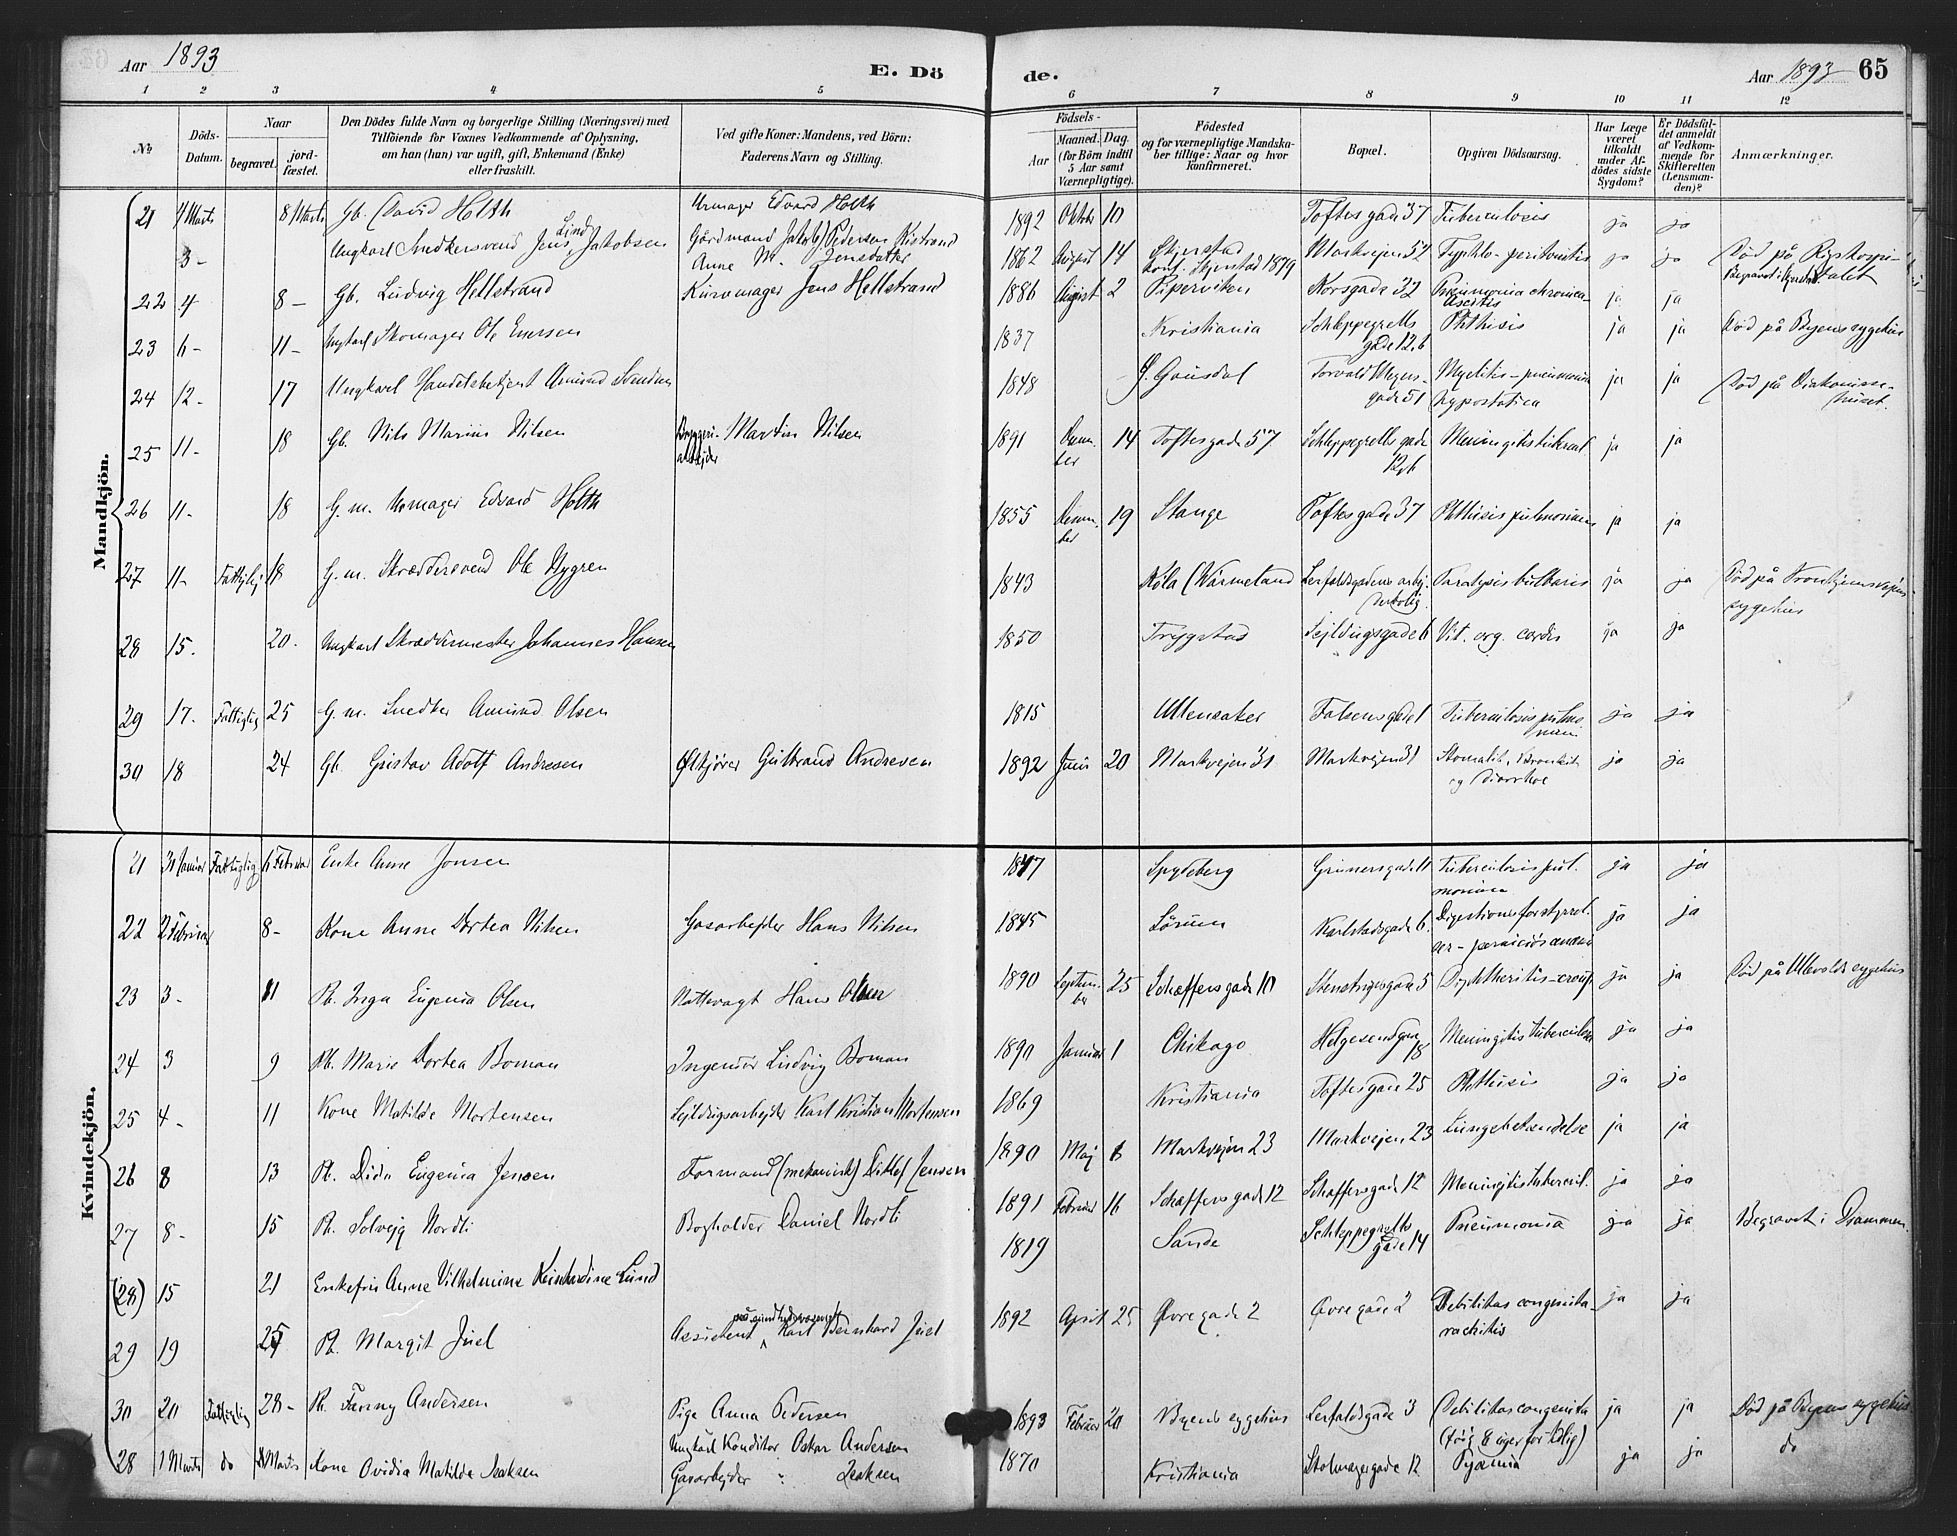 Aar 1893
E. Dö
de.
Aar 1893 65
1 2 3 4 5 6 7 8 9 10 11 12
No
Döds-
Datum.
Naar
begravet.
jord-
fæstet.
Den Dödes fulde Navn og borgerlige Stilling (Næringsvei) med
Tilföiende for Voxnes Vedkommende af Oplysning,
om han (hun) var ugift, gift, Enkemand (Enke)
eller fraskilt.
Ved gifte Koner: Mandens, ved Börn:
Faderens Navn og Stilling.
Födsels-
Aar
Maaned. Dag.
(for Börn indtil
5 Aar samt
Værnepligtige).
Födested
og for værnepligtige Mandska-
ber tillige: Naar og hvor
konfirmeret.
Bopæl.
Opgiven Dödsaarsag.
Har Læge
været
tilkaldt
under Af-
dödes sidste
Sygdom?
Er Dödsfal-
det anmeldt
af Vedkom-
mende for
Skifteretten
(Lensman-
den)?
Anmærkninger.
Mandkjön.
21 1 Marts 8 Marts Gb. David Holth Urmager Edvard Holth 1892 Oktbr 10 Toftesgade 37 Tuberculosis ja ja
3 - Ungkarl Snedkersvend Jens Lind Jakobsen Gårdmand Jakob Pedersen Kistrand
Anne M. Jensdatter 1862 August 14 Skjerstad
konf. Skjerstad 1879 Markvejen 52 Typhlo-peritonitis ja ja Död på Rigshospi-
talet
22 4 8 - Gb. Ludvig Hellstrand Kurvmager Jens Hellstrand 1886 August 2 Piperviken Korsgade 32 Pneumonia chronica
Ascitis ja ja
23 6 - 11 - Ungkarl Skomager Ole Evensen 1837 Kristiania Schleppegrells
gade 12 b Phthisis ja ja Död på Byens sygehus
24 12 - 17 Ungkarl Handelsbetjent Amund Svendsen 1848 Ø. Gausdal Torvald Meyers-
gade 51 Myelitis - pneumonia
hypostatica ja ja Död på Diakonisse-
huset.
25 11 - 18 Gb. Nils Marius Nilsen Bryggeri-
arbejder Martin Nilsen 1891 Decem-
ber 14 Toftesgade 57 Schleppegrells gade
12 b Meningitis tubercul. ja ja
26 11 - 18 G. m. Urmager Edvard Holth 1855 Decem-
ber 19 Stange Toftesgade 37 Phthisis pulmonum ja ja
27 11 - Fattiglig 18 G. m. Skræddersvend Ole Nygren 1843 Köla (Wärmeland Lerfaldsgadens arbej-
derbolig. Paralysis bulbaris ja ja Död på Trondhjemsvejens
sygehus
28 15. 20. Ungkarl Skræddermester Johannes Hansen 1850 Trygstad Sejldugsgade 6 Vit. org. cordis ja ja
29 17. Fattiglig 25 G. m. Snedker Amund Olsen 1815 Ullensaker Falsensgade 1 Tuberculosis pulmo
num. ja ja
30 18 24 Gb. Gustav Adolf Andresen Ølkjörer Gulbrand Andresen 1892 Juni 20 Markvejen 31 Markvejen 31 Stomatit, Bronkit
og Diarrhoe ja ja
Kvindekjön.
21 31 Januar Fattiglig 6 Februar Enke Anne Jonsen 1847 Spydeberg Grünersgade 11 Tuberculosis pul-
monum ja ja
22 2 Februar 8 - Kone Anne Dortea Nilsen Gasarbejder Hans Nilsen 1845 Sörum Karlstadsgade 6. Digestionsforstyrrel-
ser - perniciös anæmi ja ja
23 3 - 11 Pb. Inga Eugenia Olsen Nattevagt Hans Olsen 1890 Septem-
ber 25 Schæffersgade 10 Stenstrupsgade 5 Diphtheritis - croup ja ja Död på Ullevolds sygehus
24 3 9 Pb. Marie Dortea Boman Ingeniör Ludvig Boman 1890 Januar 1 Chikago Helgesensgade
18 Meningitis tuberculosa ja ja
25 4 - 11 Kone Matilde Mortensen Sejldugsarbejder Karl Kristian Mortensen 1869 Kristiania Toftesgade 25 Phthisis ja ja
26 8 13 Pb. Dida Eugenia Jensen Formand (mekanisk) Ditlef Jensen 1890 Maj 6 Markvejen 23 Markvejen 23 Lungebetændelse ja ja
27 8 - 15 Pb. Solvejg Nordli Bogholder Daniel Nordli 1891 Februar 16 Schæffersgade 12 Schæffersgade 12 Meningitis tubercul. ja ja
(28) 15 21 Enkefru Anne Vilhelmine Reinhardine Lund 1819 Sande Schleppegrells
gade 14 Pneumonia ja ja Begravet i Drammen.
29 19 25 Pb. Margit Juel Assistent Karl Bernhard Juel 1892 April 25 Øvregade 2 Øvregade 2 Debilitas congenita-
rachitis ja ja
30 20 Fattiglig 28 - Pb. Fanny Andersen Pige Anna Pedersen
Ungkarl Konditor Oskar Andersen 1893 Februar 20 Byens sygehus Lerfaldsgade 3 Debilitas congenita
(født 8 uger for tidlig) ja ja Död på Byens sygehus
28 1 Marts do Marts Kone Ovidia Matilde Isaksen Gasarbejder " Isaksen 1870 Kristiania Stolmagergade 12 Pyæmia ja ja do